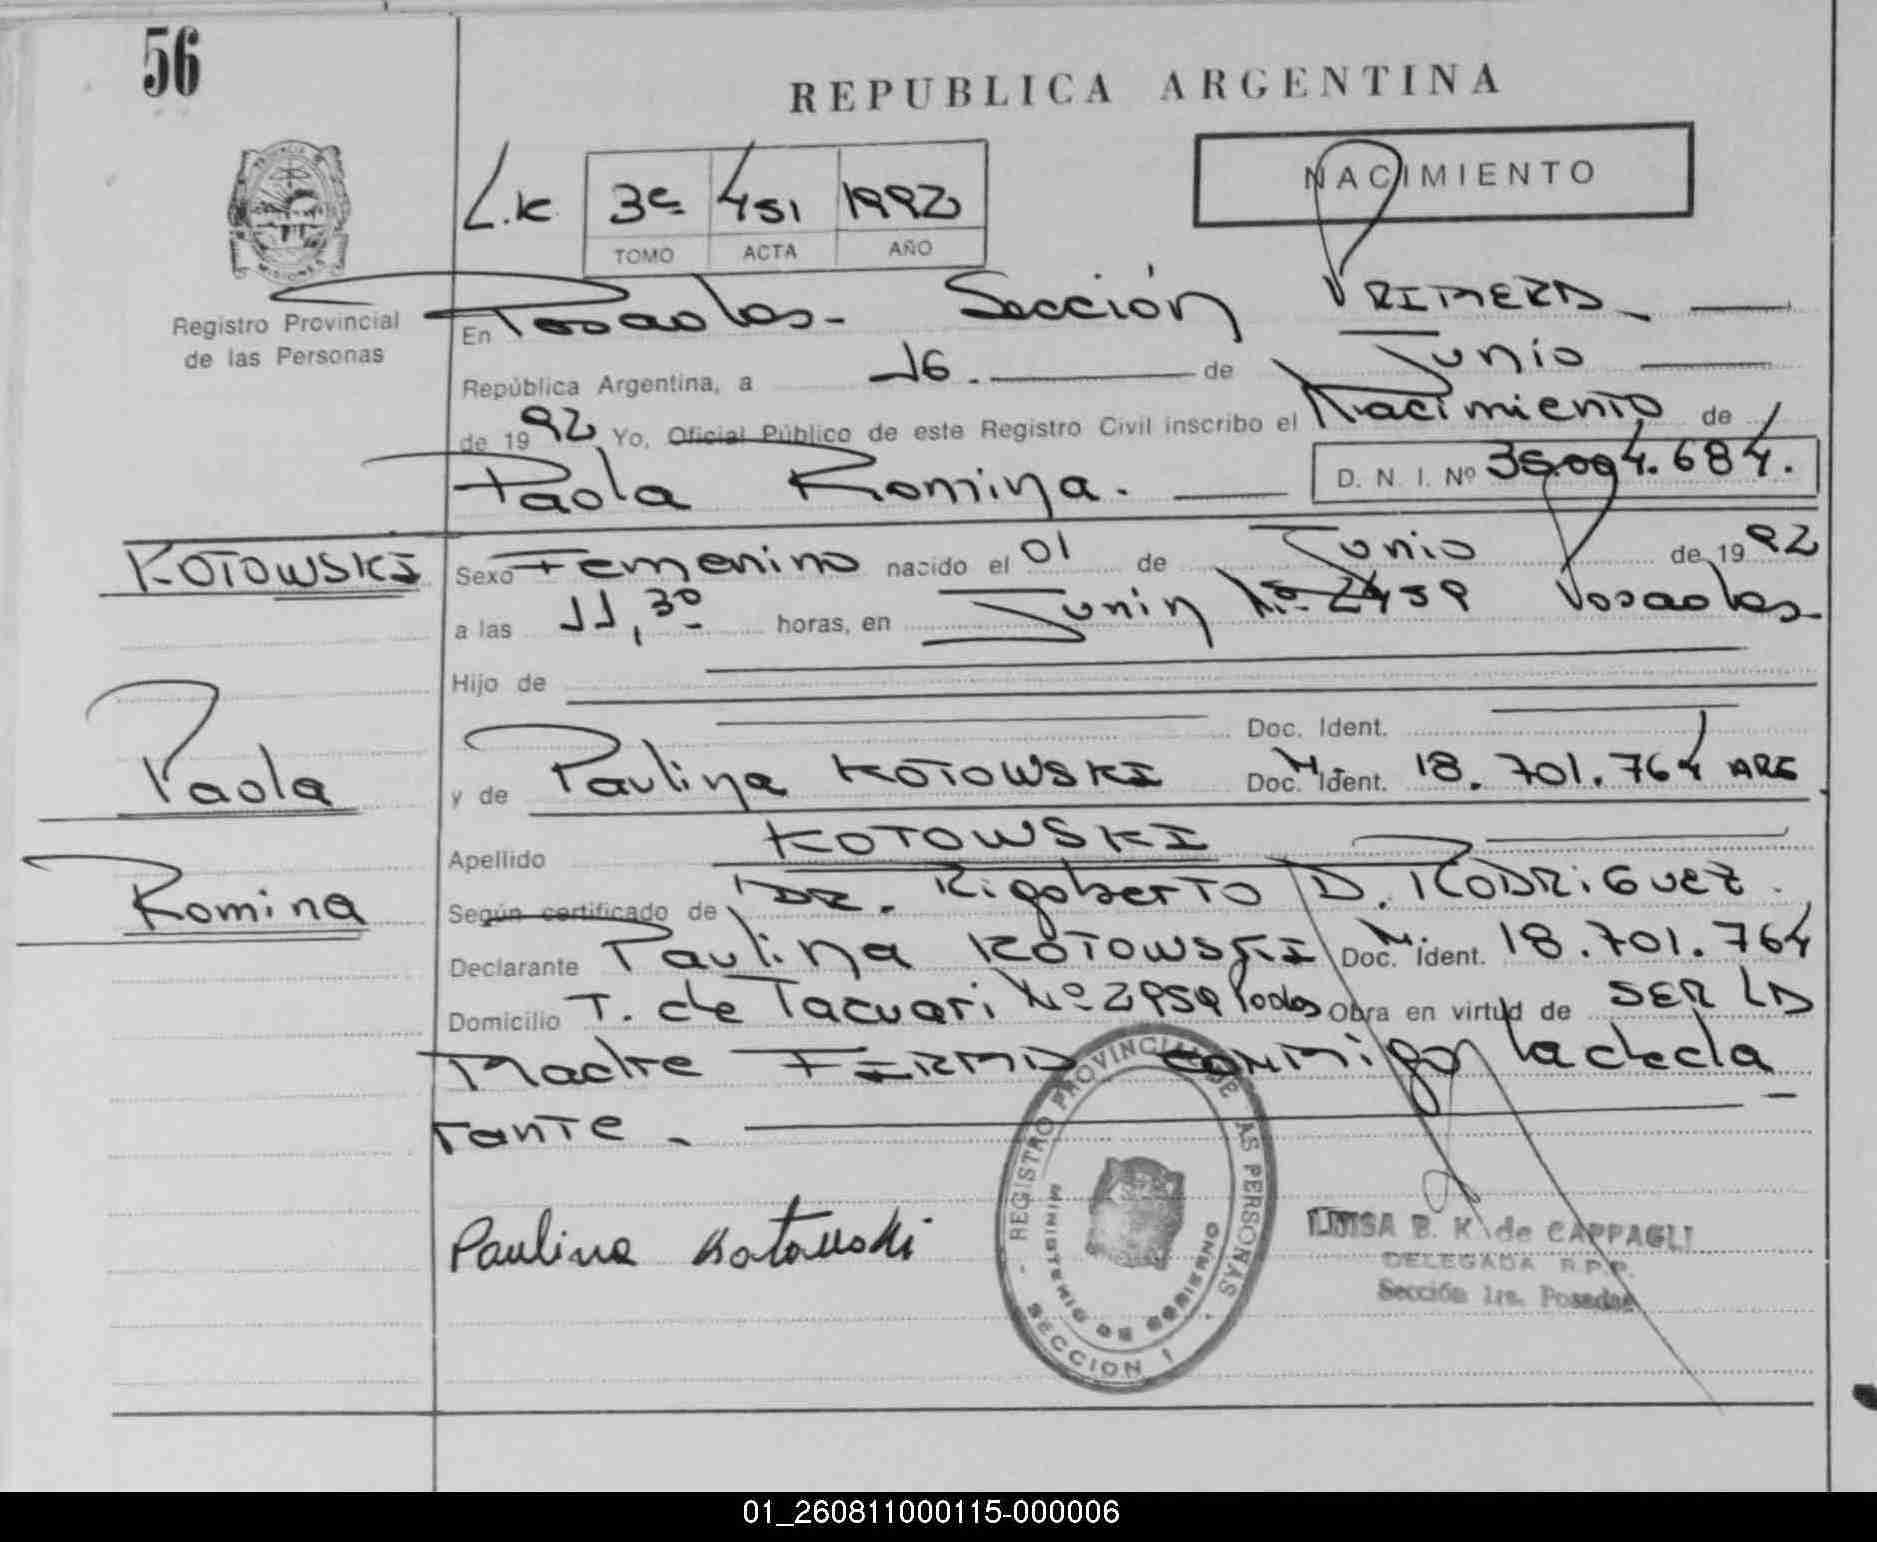 56
REPUBLICA ARGENTINA
NACIMIENTO
3c 451 1992
TOMO ACTA AÑO
Registro Provincial
de las Personas
En Posadas - Sección PRIMERA
República Argentina, a 16. de Junio
de 1992 Yo, Oficial Público de este Registro Civil inscribo el Nacimiento de
Paola Romina. D. N. I. Nº 684.
KOTOWSKI
Sexo Femenino nacido el 01 de Junio de 1992
a las 11,30 horas, en Junin Nº 2459 Posadas
Hijo de
Doc. Ident.
Paola
y de Paulina KOTOWSKI Doc. Ident. 18.701.764 ARG
Apellido KOTOWSKI
Romina
Según certificado de DR. Rigoberto D. RODRiGuez.
Declarante Paulina KOTOWSKI Doc. Ident. 18.701.764
Domicilio T. de Tacuari Nº 2959 Pdas Obra en virtud de SER LA
Madre FIRMA conmigo la decla
rante.
Paulina Kotowski
REGISTRO PROVINCIAL DE LAS PERSONAS
MINISTERIO DE GOBIERNO
SECCION 1
LUISA B. K. de CAPPAGLI
DELEGADA R.P.P.
Sección 1ra. Posadas
01_260811000115-000006